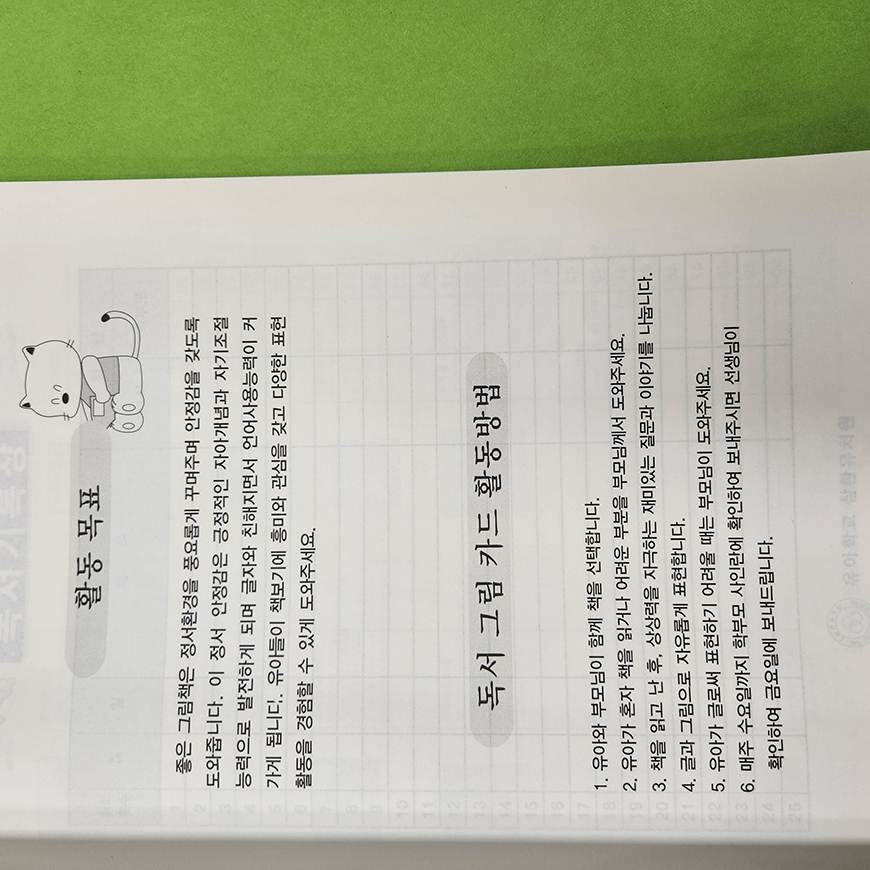 활동 목표
좋은 그림책은 정서환경을 풍요롭게 꾸며주며 안정감을 갖도록
도와줍니다. 이 정서 안정감은 긍정적인 자아개념과 자기조절
능력으로 발전하게 되며 글자와 친해지면서 언어사용능력이 커
가게 됩니다!. 유아들이 책보기에 흥미와 관심을 갖고 다양한 표현
활동을 경험할 수 있게 도와주세요.
독서 그림 카드 활동방법
1. 유아와 부모님이 함께 책을 선택합니다.
2. 유아가 혼자 책을 읽거나 어려운 부분을 부모님께서 도와주세요.
3. 책을 읽고 난 후, 상상력을 자극하는 재미있는 질문과 이야기를 나눕니다.
4. 글과 그림으로 자유롭게 표현합니다.
5. 유아가 글로써 표현하기 어려울 때는 부모님이 도와주세요.
6. 매주 수요일까지 학부모 사인란에 확인하여 보내주시면 선생님이
확인하여 금요일에 보내드립니다.